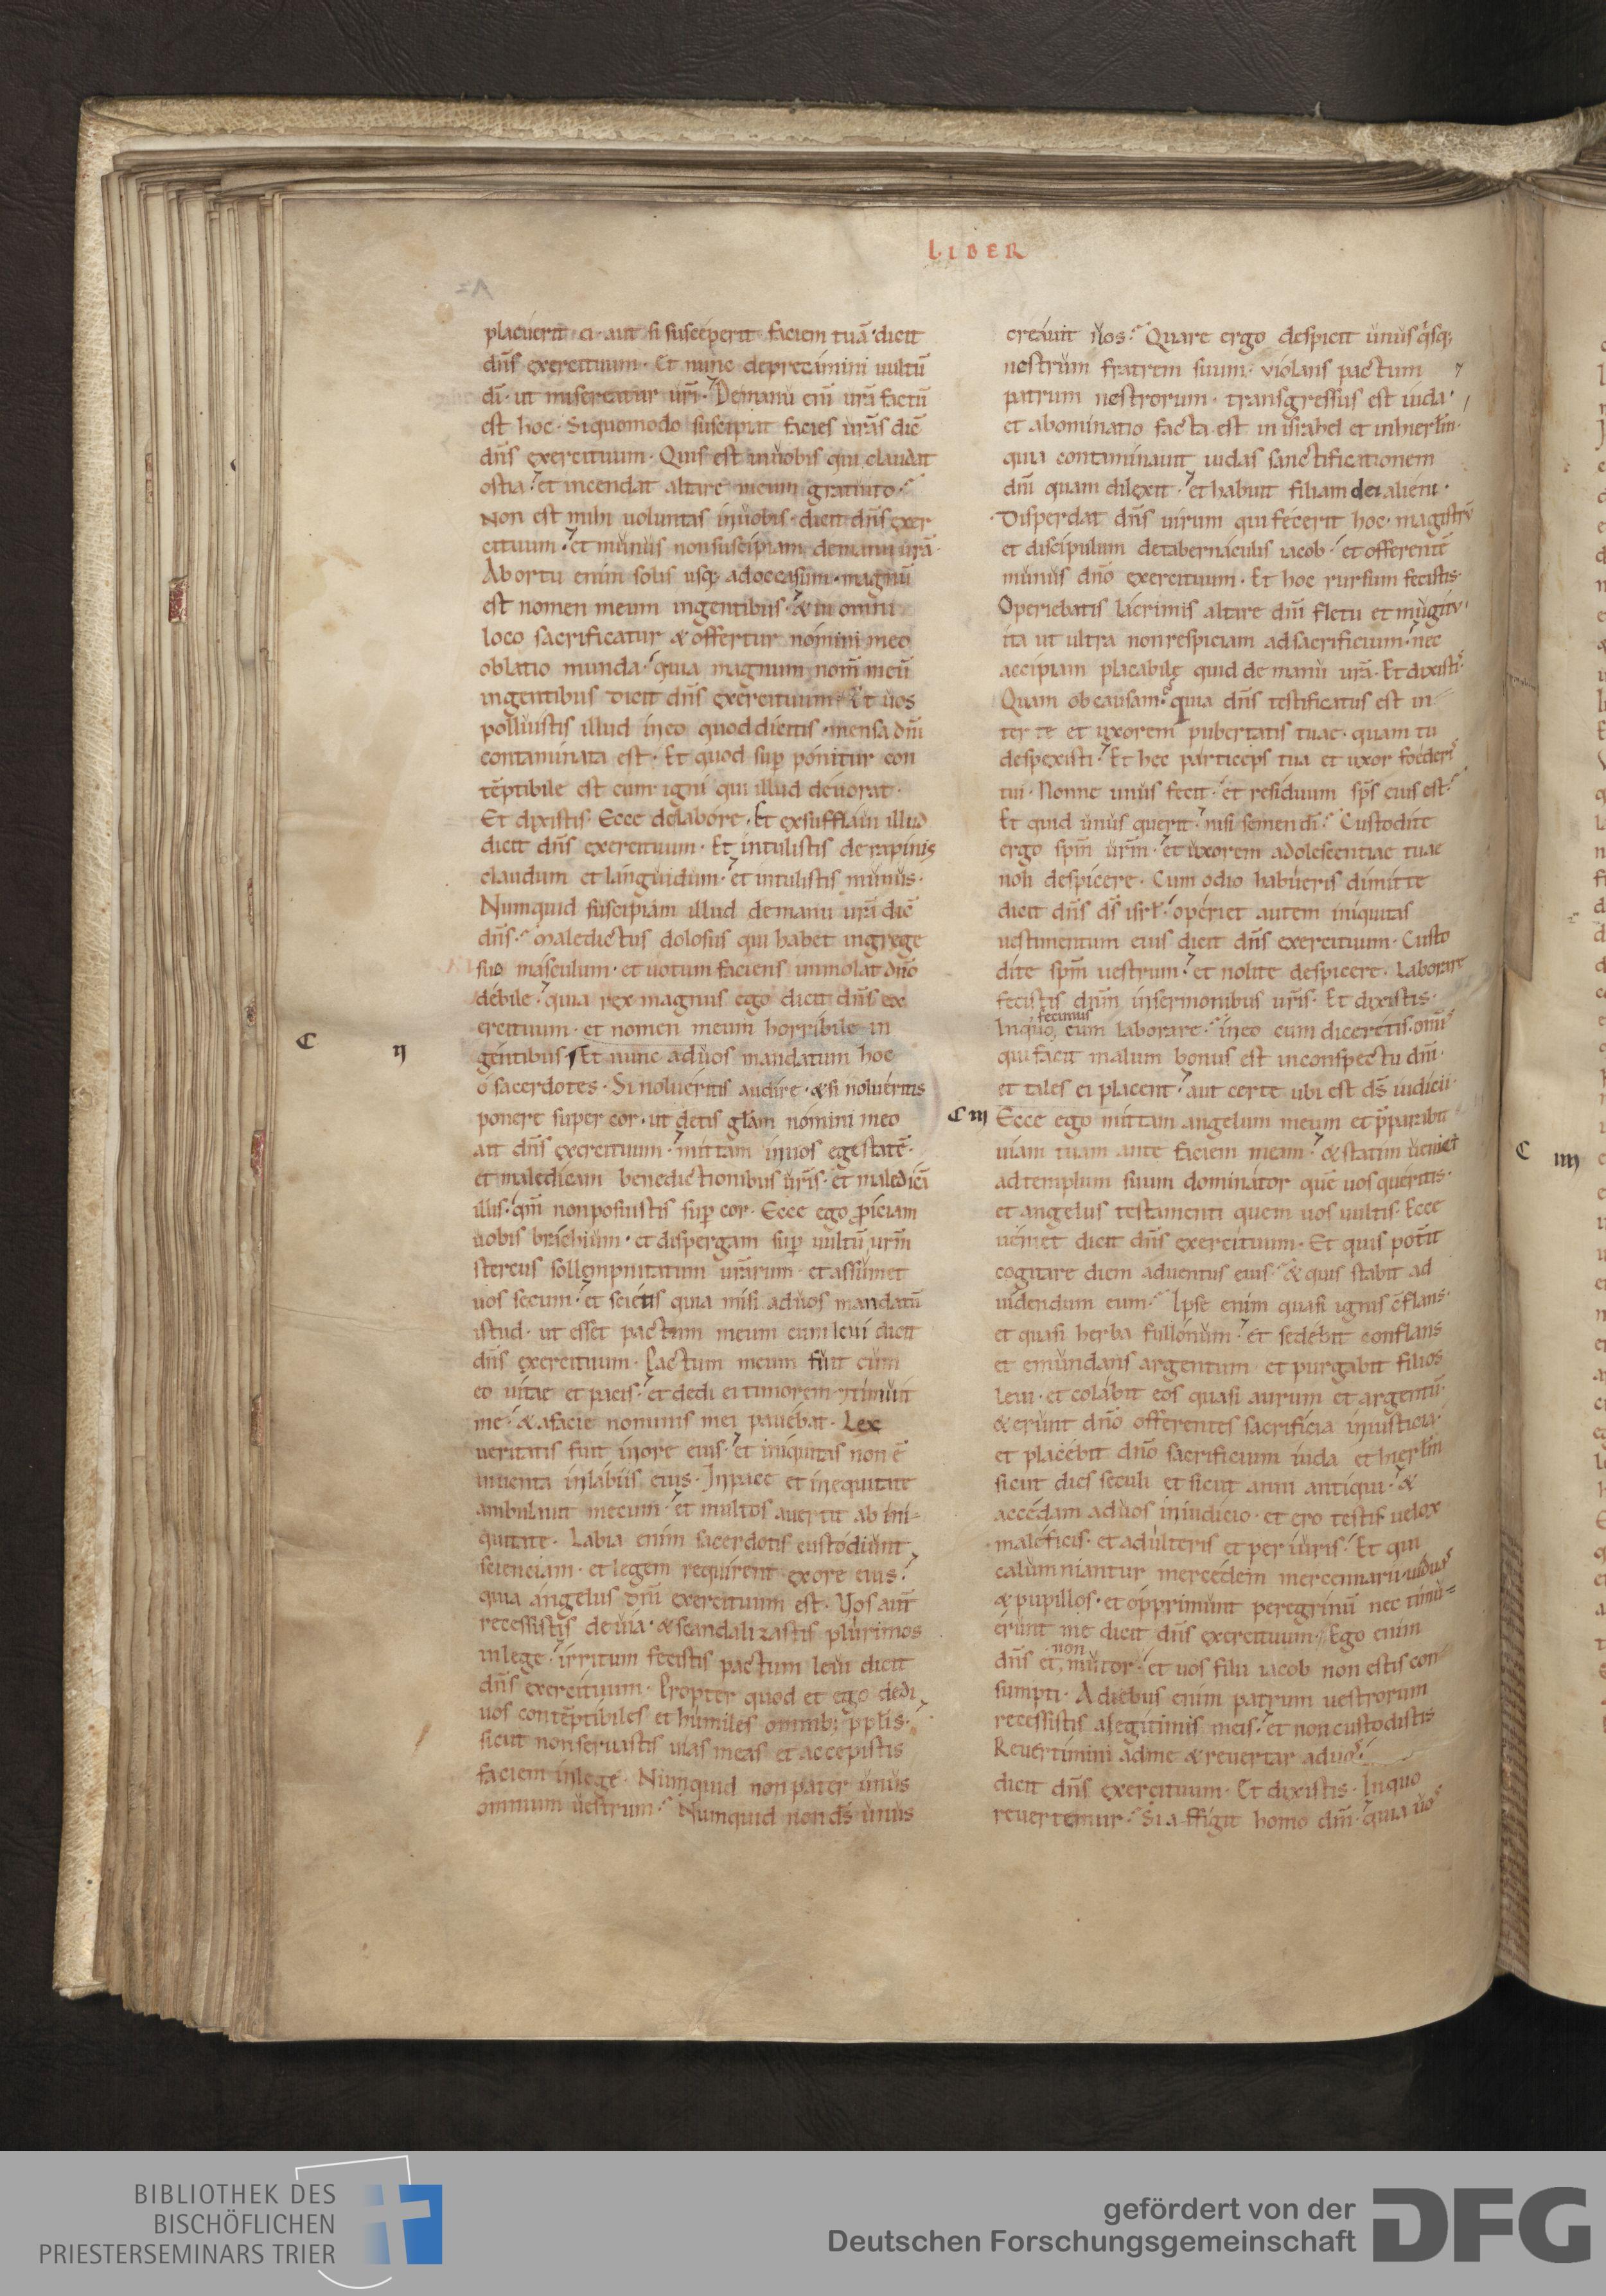 LIBER
placuerit ei · aut si susceperit faciem tuā · dicit
dn̄s exercituum · Et nunc deprecamini uultū
dī · ut misereatur ur̄i · Demanu enī urā factū
est hoc · Siquomodo suscipiat facies ur̄as dic̄
dn̄s exercituum · Quis est inuobis qui claudat
ostia · et incendat altare meum gratuito ·
Non est mihi uoluntas inuobis · dicit dn̄s exer
cituum · et munus nonsuscipiam demanu ur̄a ·
Abortu enim solis usq; adoccasum · magnū
est nomen meum ingentibus · & in omni
loco sacrificatur & offertur nomini meo
oblatio munda · quia magnum nom̄ meū
ingentibus dicit dn̄s exercituum · Et uos
polluistis illud ineo quod dicitis · mensa dn̄i
contaminata est · Et quod sup̄ ponitur con
tēptibile est cum igni qui illud deuorat ·
Et dixistis Ecce delabore · Et exsufflastis illud
dicit dn̄s exercituum · Et intulistis derapinis
claudum et languidum · et intulistis munus ·
Numquid suscipiam illud demanu ur̄a dic̄
dn̄s · Maledictus dolosus qui habet ingrege
suo masculum · et uotum faciens immolat dn̄o
debile · quia rex magnus ego dicit dn̄s ex
ercituum · et nomen meum horribile in
C ij
gentibus · Et nunc aduos mandatum hoc
o sacerdotes · Si nolueritis audire · & si nolueritis
ponere super cor · ut detis glām nomini meo
ait dn̄s exercituum · mittam inuos egestatē ·
et maledicam benedictionibus ur̄is · et maledicā
illis · qm̄ nonposuistis sup̄ cor · Ecce ego p̄iciam
uobis brachium · et dispergam sup̄ uultū ur̄m
stercus sollempnitatum ur̄arum · et assumet
uos secum · et scietis quia misi aduos mandatū
istud · ut esset pactum meum cum leui dicit
dn̄s exercituum · Pactum meum fuit cum
eo uitae et pacis · et dedi ei timorem · & timuit
me · & afacie nominis mei pauebat · Lex
ueritatis fuit inore eius · et iniquitas non ē
inuenta inlabiis eius · Inpace et inequitate
ambulauit mecum · et multos auertit ab ini-
quitate · Labia enim sacerdotis custodiunt
scienciam · et legem requirent exore eius ·
quia angelus dn̄i exercituum est · Uos aut̄
recessistis deuia · & scandalizastis plurimos
inlege · irritum fecistis pactum leui dicit
dn̄s exercituum · Propter quod et ego dedi
uos contēptibiles et humiles omnib; ppl̄is ·
sicut nonseruastis uias meas et accepistis
faciem inlege · Numquid non pater unus
omnium uestrum · Numquid non ds̄ unus
creauit nos · Quare ergo despicit unus q̄sq;
nestrum fratrem suum · violans pactum
patrum nestrorum · transgressus est iuda ·
et abominatio facta est in israhel et inhierl̄m ·
quia contaminauit iudas sanctificationem
dn̄i quam dilexit · et habuit filiam dei alieni ·
Disperdat dn̄s uirum qui fecerit hoc · magistrū
et discipulum detabernaculis iacob · et offerentē
munus dn̄o exercituum · Et hoc rursum fecistis ·
Operiebatis lacrimis altare dn̄i fletu et mugitu ·
ita ut ultra nonrespiciam adsacrificium · nec
accipiam placabile quid de manu ur̄a · Et dixistis ·
Quam obcausam · quia dn̄s testificatus est in-
ter te et uxorem pubertatis tuae · quam tu
despexisti · Et hec particeps tua et uxor foederis
tui · Nonne unus fecit · et residuum sps̄ eius est ·
Et quid unus querit · nisi semen dī · Custodite
ergo spm̄ ur̄m · et uxorem adolescentiae tuae
noli despicere · Cum odio habueris dimitte
dicit dn̄s ds̄ isrl̄ · operiet autem iniquitas
uestimentum eius dicit dn̄s exercituum · Custo
dite spm̄ uestrum · et nolite despicere · Laborare
fecistis dn̄m insermonibus ur̄is · Et dixistis ·
fecimus
Inquo, eum laborare · ineo cum diceretis · omīs
qui facit malum bonus est inconspectu dn̄i ·
et tales ei placent · aut certe ubi est ds̄ iudicii ·
C iij
Ecce ego mittam angelum meum et p̄parabit
uiam tuam ante faciem meam · & statim ueniet
adtemplum suum dominator quē uos queritis ·
et angelus testamenti quem uos uultis · Ecce
ueniet dicit dn̄s exercituum · Et quis pot̄it
cogitare diem aduentus eius · & quis stabit ad
uidendum eum · Ipse enim quasi ignis c̄flans ·
et quasi herba fullonum · et sedebit conflans
et emundans argentum et purgabit filios
leui · et colabit eos quasi aurum et argentū ·
& erunt dn̄o offerentes sacrificia iniusticia ·
et placebit dn̄o sacrificium iuda et hierl̄m
sicut dies seculi et sicut anni antiqui · &
accedam aduos iniudicio · et ero testis uelox
maleficis · et adulteris et periuris · Et qui
calumniantur mercedem mercennarii · uiduas
& pupillos · et opprimunt peregrinū nec timu-
erunt me dicit dn̄s exercituum · Ego enim
non
dn̄s et, mutor · et uos filii iacob non estis con-
sumpti · A diebus enim patrum uestrorum
recessistis alegitimis meis · et noncustodistis
Reuertimini adme & reuertar aduos ·
dicit dn̄s exercituum · Et dixistis · Inquo
reuertemur · Si affigit homo dm̄ · quia uos
C iiij
BIBLIOTHEK DES
BISCHÖFLICHEN
PRIESTERSEMINARS TRIER
gefördert von der
Deutschen Forschungsgemeinschaft
DFG